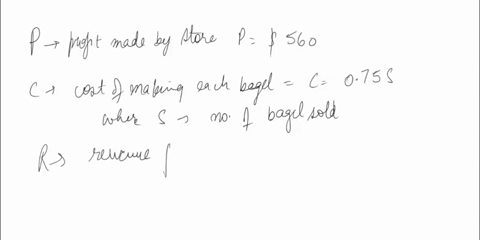 P → profit made by store P = $ 560
C → cost of making each bagel = C = 0.75S
where S → no. of bagel sold
R → revenue